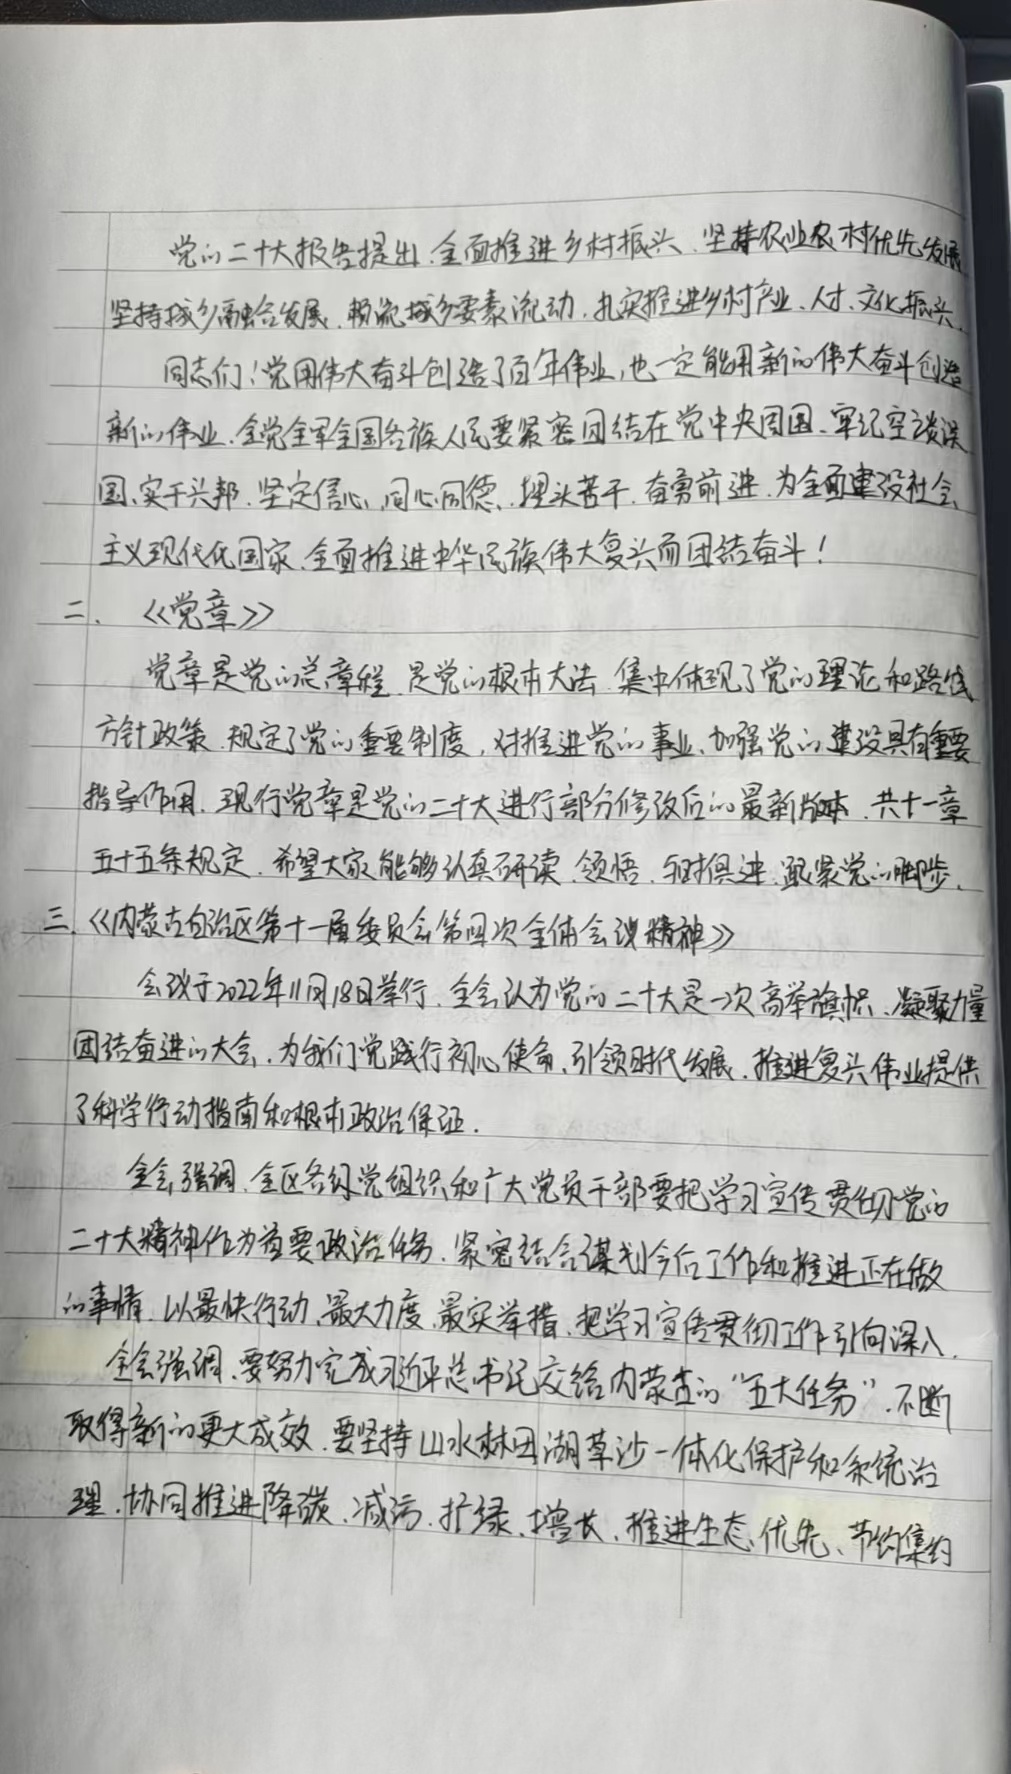 党的二十大报告提出、全面推进乡村振兴、坚持农业农村优先发展
坚持城乡融合发展、畅流城乡要素流动、扎实推进乡村产业、人才、文化振兴、
同志们!党用伟大奋斗创造了百年伟业,也一定能用新的伟大奋斗创造
新的伟业、全党全军全国各族人民要紧密团结在党中央周围、牢记空谈误
国、实干兴邦、坚定信心、同心同德、埋头苦干、奋勇前进、为全面建设社会
主义现代化国家、全面推进中华民族伟大复兴而团结奋斗!
二、《党章》
党章是党的总章程、是党的根本大法、集中体现了党的理论和路线
方针政策、规定了党的重要制度,对推进党的事业、加强党的建设具有重要
指导作用、现行党章是党的二十大进行部分修改后的最新版本、共十一章
五十五条规定、希望大家能够认真研读、领悟、与时俱进、跟紧党的脚步、
三、《内蒙古自治区第十一届委员会第四次全体会议精神》
会议于2022年11月18日举行、全会认为党的二十大是一次高举旗帜、凝聚力量
团结奋进的大会、为我们党践行初心使命、引领时代发展、推进复兴伟业提供
了科学行动指南和根本政治保证.
全会强调、全区各级党组织和广大党员干部要把学习宣传贯彻党的
二十大精神作为首要政治任务、紧密结合谋划今后工作和推进正在做
的事情、以最快行动、最大力度、最实举措、把学习宣传贯彻工作引向深入、
全会强调、要努力完成习近平总书记交给内蒙古的“五大任务”、不断
取得新的更大成效、要坚持山水林田湖草沙一体化保护和系统治
理、协同推进降碳、减污、扩绿、增长、推进生态、优先、节约集约